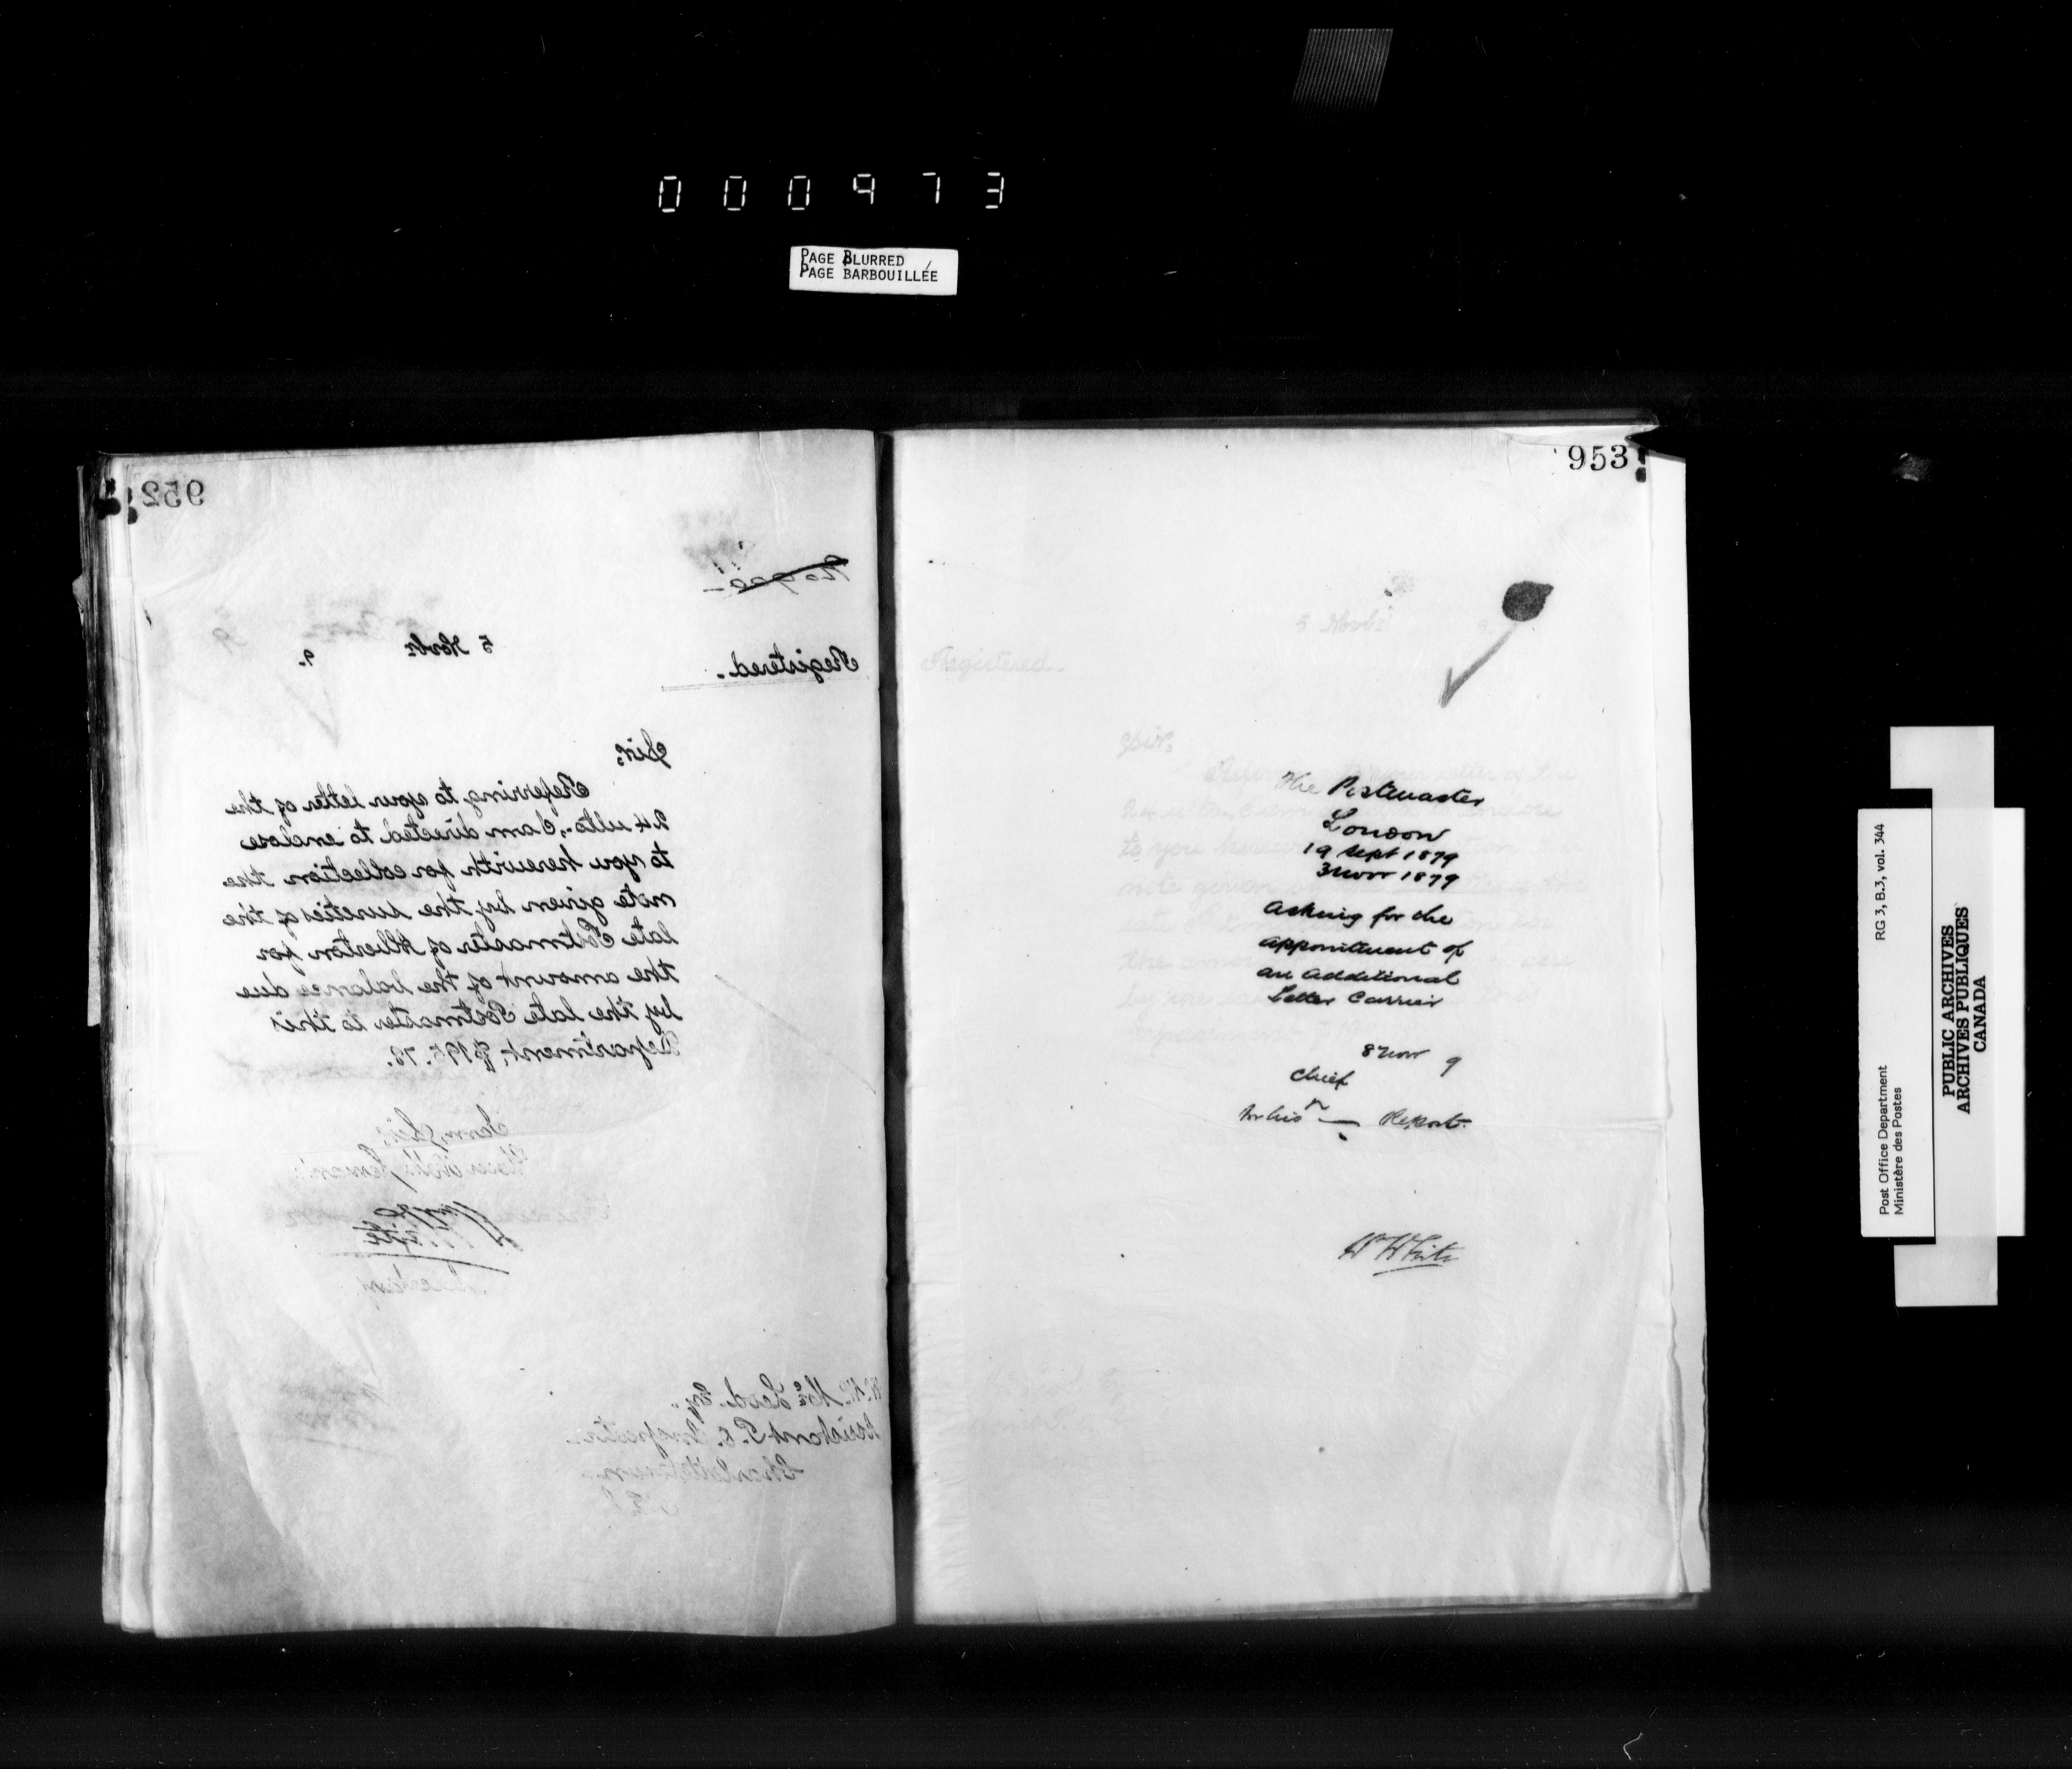 000973
PAGE BLURRED
PAGE BARBOUILLÉE
952
5 Novbr 9.
Registered.
Sir,
Referring to your letter of the
24 ulto., I am directed to enclose
to you herewith for collection the
note given by the sureties of the
late Postmaster of Alberton for
the amount of the balance due
by the late Postmaster to this
Department, $195.78.
I am, Sir,
Your Obt. Servant
Esq.
Assistant P.O. Inspector
Charlottetown
953
The Postmaster
London
19 Sept 1879
3 Novr 1879
Asking for the
appointment of
an additional
Letter Carrier
8 Novr 9
Chief
for his Report.
W White
RG 3, B.3, vol. 344
Post Office Department
Ministère des Postes
PUBLIC ARCHIVES
ARCHIVES PUBLIQUES
CANADA